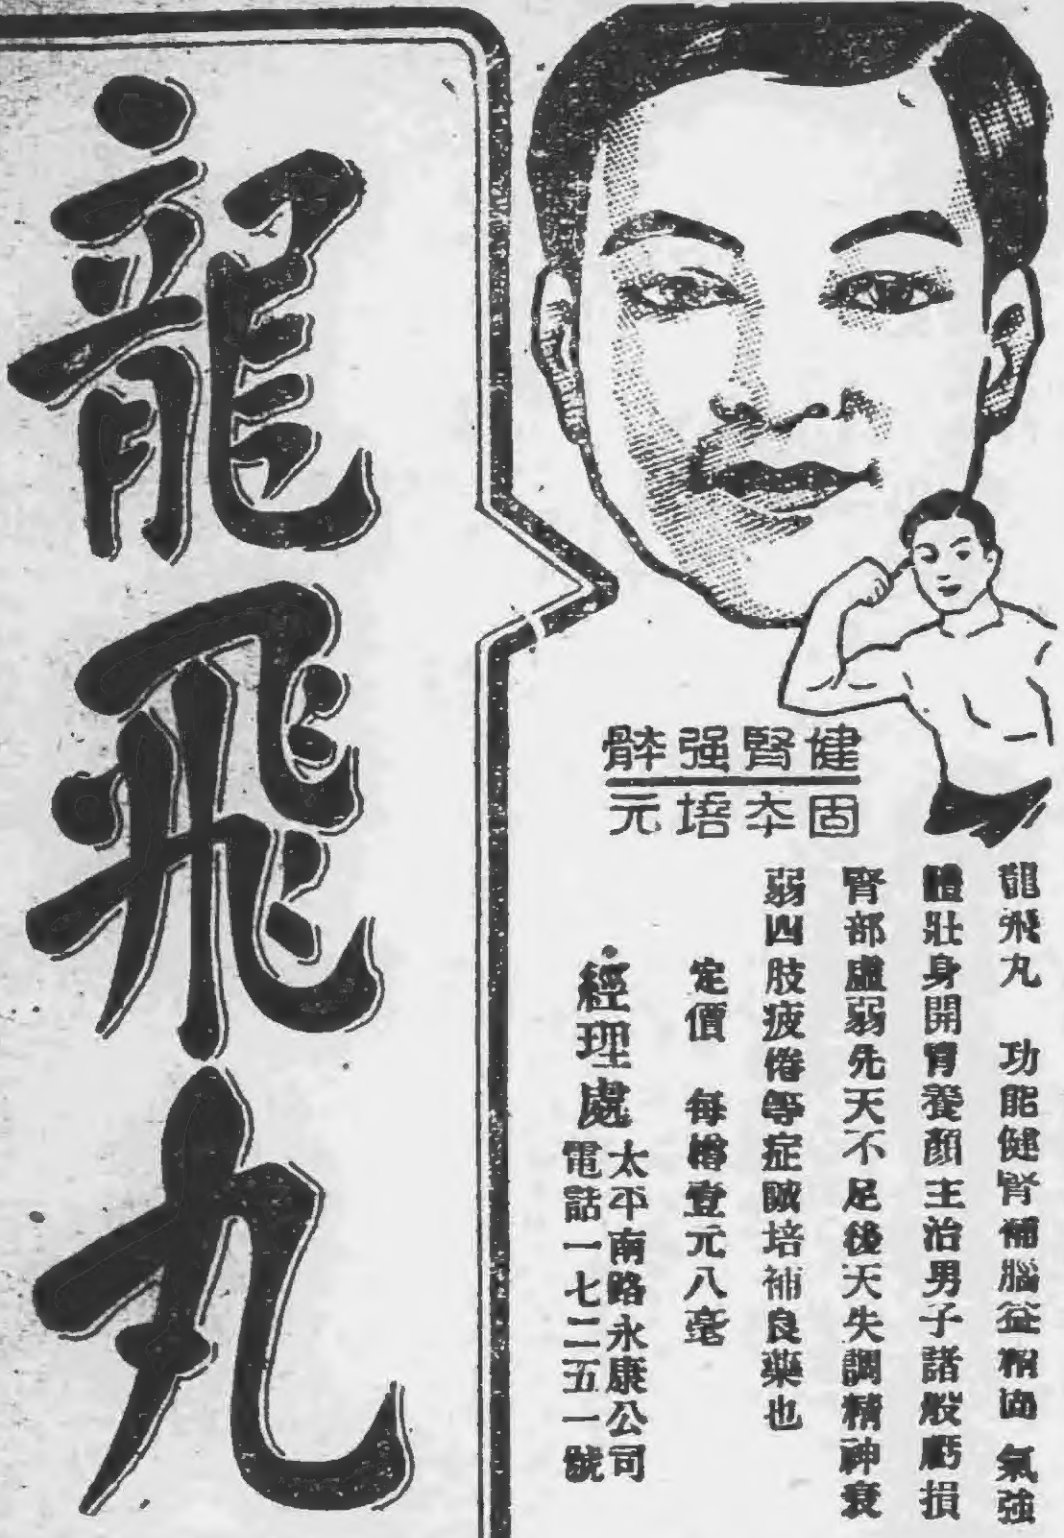 龍飛丸
健腎强骵
固夲培元
龍飛丸 功能健腎補腦益精 氣強
體壯身開胃養顏主治男子諸般虧損
腎部虛弱先天不足後天失調精神衰
弱四肢疲倦等症誠培補良藥也
定價 每樽壹元八毫
經理處
太平南路永康公司
電話一七二五一號